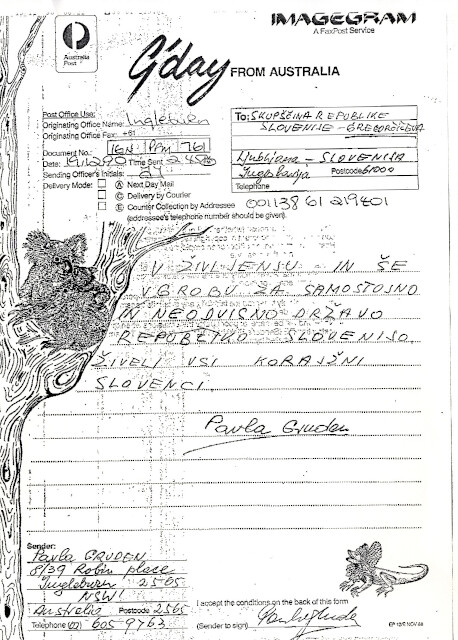 IMAGEGRAM
A FaxPost Service
Australia
Post
G'day FROM AUSTRALIA
Post Office Use:
Originating Office Name: Ingleburn
Originating Office Fax: +61
Document No.: IGN PPM 761
Date: 19/12/90 Time Sent 245
Sending Officer's Initials:
Delivery Mode: A Next Day Mail
C Delivery by Courier
E Counter Collection by Addressee
(addressee's telephone number should be given).
To: SKUPŠČINA REPUBLIKE
SLOVENIJE - GREGORČIČEVA
Ljubljana - SLOVENIJA
Jugoslavija Postcode 61000
Telephone
001138 61 219401
V ŽIVLJENJU IN ŠE
V GROBU ZA SAMOSTOJNO
IN NEODVISNO DRŽAVO
SLOVENIJO.
ŽIVELI VSI KORAJŽNI
SLOVENCI.
Pavla Gruden
Sender:
Pavla GRUDEN
8/39 Robin place
Ingleburn 2565
NSW
Australia Postcode 2565
Telephone (02) 605 9763
I accept the conditions on the back of this form
(Sender to sign)